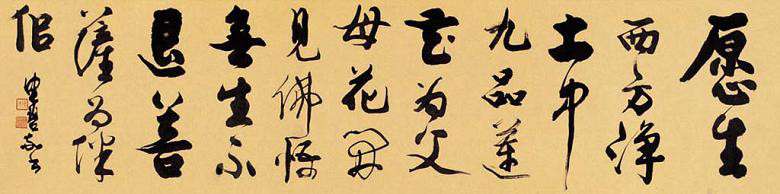 愿生
西方淨
土中
九品蓮
花为父
母花開
見佛悟
無生不
退菩
薩为伴
侣